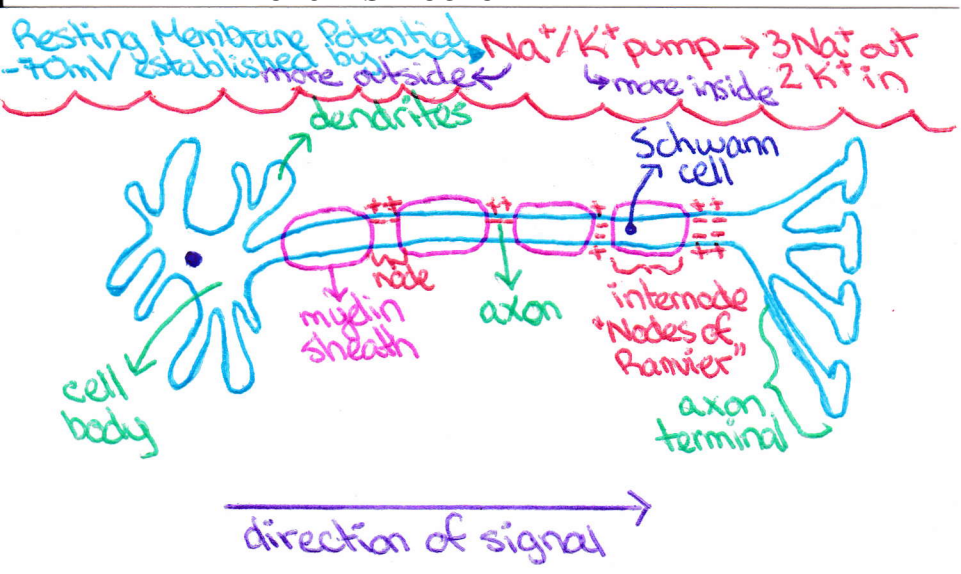 Resting Membrane Potential
-70mV established by
Na⁺/K⁺ pump → 3Na⁺ out
2K⁺ in
more outside
more inside
dendrites
Schwann
cell
++
++
+
++
=
=
node
myelin
sheath
axon
internode
"Nodes of
Ranvier"
cell
body
axon
terminal
direction of signal